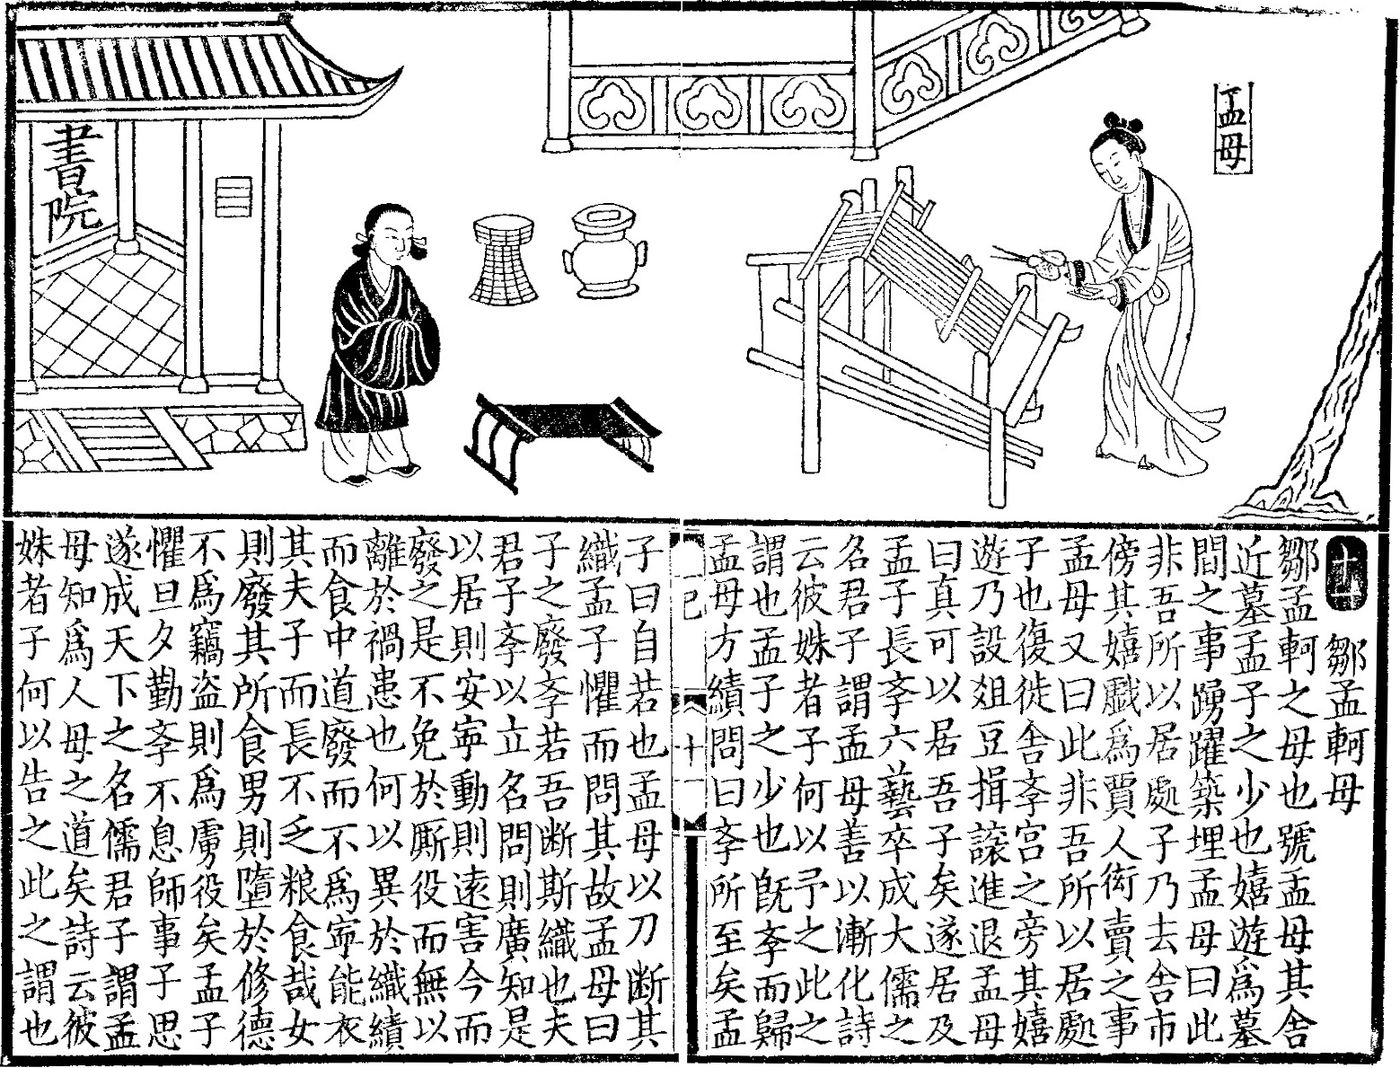 孟母
書院
十一 鄒孟軻母
鄒孟軻之母也號孟母其舍
近墓孟子之少也嬉遊爲墓
間之事踴躍築埋孟母曰此
非吾所以居處子乃去舍市
傍其嬉戲爲賈人衒賣之事
孟母又曰此非吾所以居處
子也復徙舍斈宮之旁其嬉
遊乃設爼豆揖讓進退孟母
曰真可以居吾子矣遂居及
孟子長斈六藝卒成大儒之
名君子謂孟母善以漸化詩
云彼姝者子何以予之此之
謂也孟子之少也旣斈而歸
孟母方績問曰斈所至矣孟
十一
子曰自若也孟母以刀断其
織孟子懼而問其故孟母曰
子之廢斈若吾断斯織也夫
君子斈以立名問則廣知是
以居則安寧動則遠害今而
廢之是不免於厮役而無以
離於禍患也何以異於織績
而食中道廢而不爲寧能衣
其夫子而長不乏粮食哉女
則廢其所食男則墮於修德
不爲竊盜則爲虜役矣孟子
懼旦夕勤斈不息師事子思
遂成天下之名儒君子謂孟
母知爲人母之道矣詩云彼
姝者子何以告之此之謂也